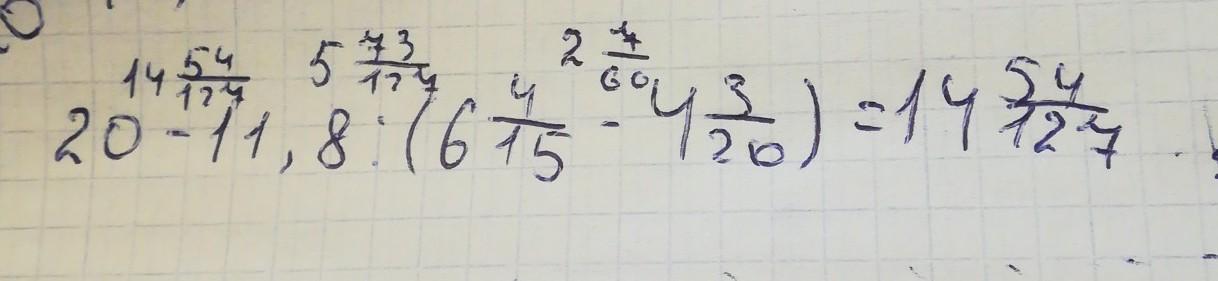 14 54/127 5 73/127 2 7/60
20 - 11,8 : (6 4/15 - 4 3/20) = 14 54/127